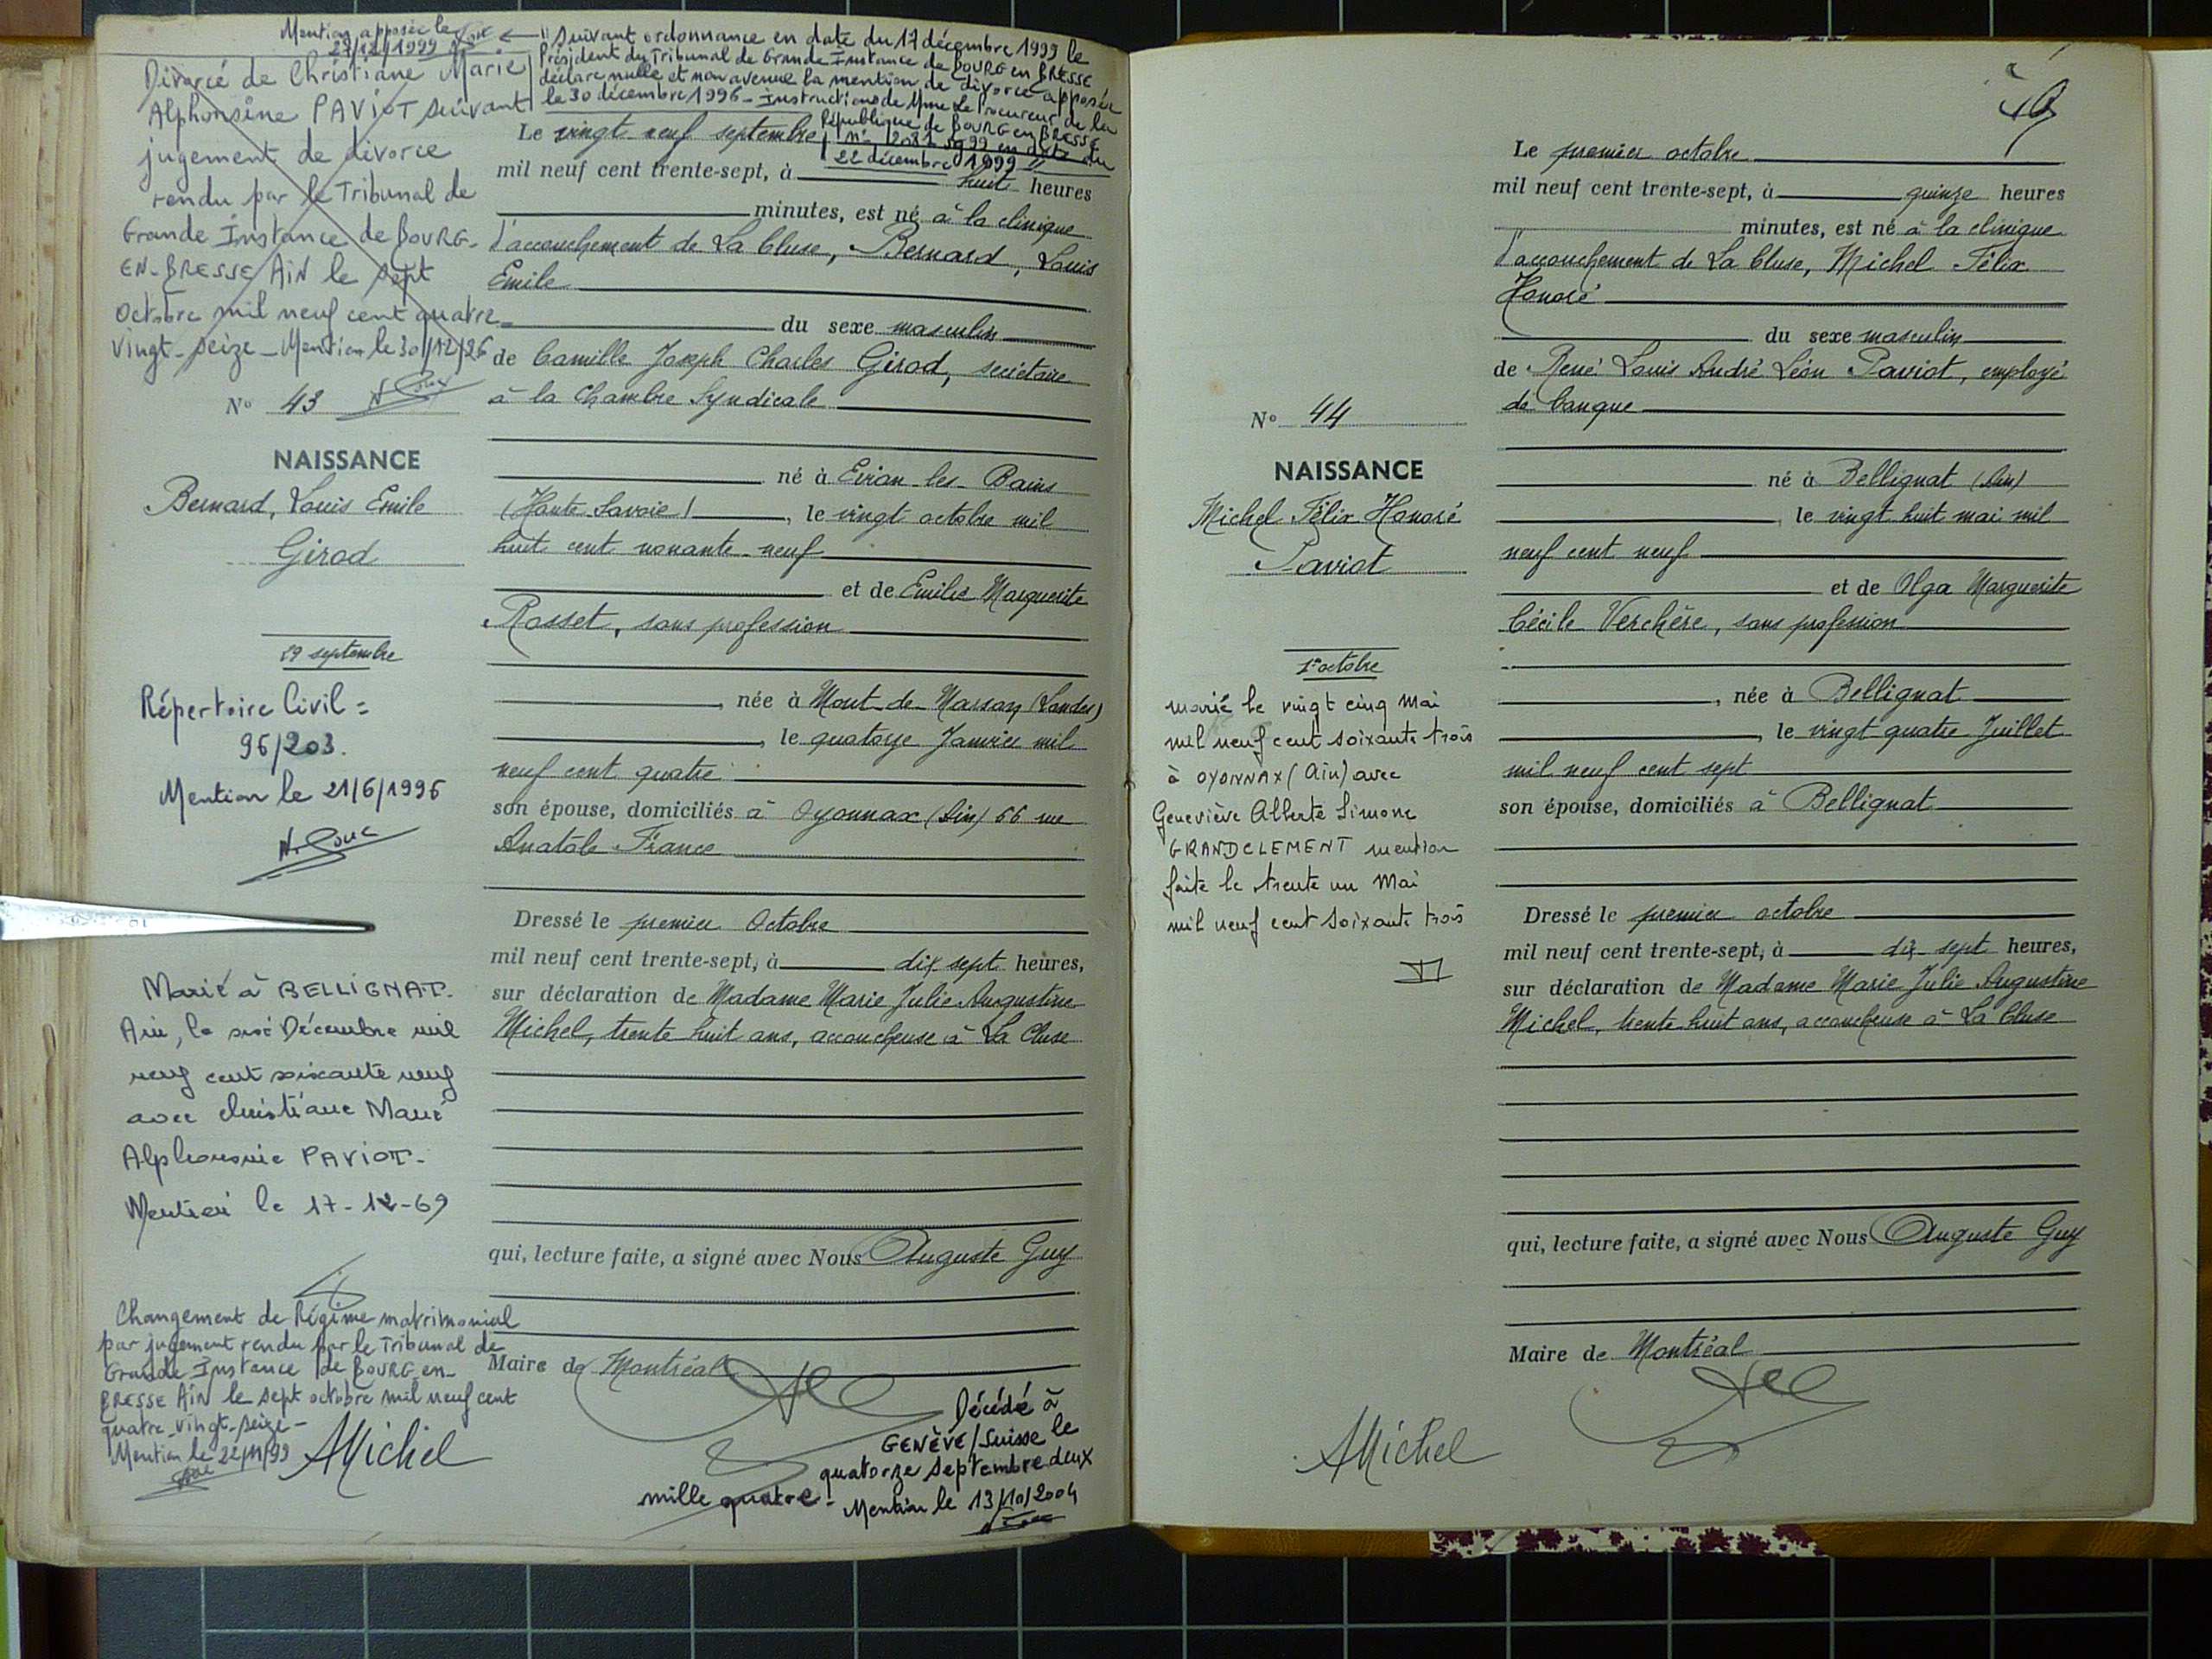 Mention apposée le
27/12/1999
" suivant ordonnance en date du 17 décembre 1999 le
Président du Tribunal de Grande Instance de BOURG en BRESSE
déclare nulle et non avenue la mention de divorce apposée
le 30 décembre 1996 - Instructions de Mme Le Procureur de la
République de BOURG en BRESSE
en date du
22 décembre 1999 "
Divorcé de Christiane Marie
Alphonsine PAVIOT suivant
jugement de divorce
rendu par le Tribunal de
Grande Instance de BOURG-
EN-BRESSE AIN le sept
Octobre mil neuf cent quatre-
vingt-seize - Mention le 30/12/96
N° 43
NAISSANCE
Bernard, Louis Emile
Girod
29 septembre
Répertoire Civil =
96/203.
Mention le 21/6/1996
Marié à BELLIGNAT-
Ain, le six Décembre mil
neuf cent soixante neuf
avec Christiane Marie
Alphonsine PAVIOT-
Mention le 17-12-69
Changement de Régime matrimonial
par jugement rendu par le Tribunal de
Grande Instance de BOURG-en-
BRESSE AIN le sept octobre mil neuf cent
quatre-vingt-seize -
Mention le 22/11/99
AMichel
Le vingt neuf septembre
mil neuf cent trente-sept, à huit heures
minutes, est né à la clinique
d'accouchement de La Cluse, Bernard, Louis
Emile
du sexe masculin
de Camille Joseph Charles Girod, secrétaire
à la Chambre Syndicale
né à Evian-les-Bains
(Haute-Savoie), le vingt octobre mil
huit cent nonante-neuf
et de Emilie Marguerite
Rosset, sans profession
née à Mont-de-Marsan (Landes)
, le quatorze Janvier mil
neuf cent quatre
son épouse, domiciliés à Oyonnax (Ain) 66 rue
Anatole France
Dressé le premier Octobre
mil neuf cent trente-sept, à dix sept heures,
sur déclaration de Madame Marie Julie Augustine
Michel, trente huit ans, accoucheuse à La Cluse
qui, lecture faite, a signé avec Nous Auguste Guy
Maire de Montréal
Décédé à
GENÈVE/Suisse le
quatorze septembre deux
mille quatre - Mention le 13/10/2004
49
N° 44
NAISSANCE
Michel Félix Honoré
Paviot
1er octobre
marié le vingt cinq Mai
mil neuf cent soixante trois
à OYONNAX (Ain) avec
Geneviève Alberte Simone
GRANDCLEMENT mention
faite le trente un Mai
mil neuf cent soixante trois
Le premier octobre
mil neuf cent trente-sept, à quinze heures
minutes, est né à la clinique
d'accouchement de La Cluse, Michel Félix
Honoré
du sexe masculin
de René Louis André Léon Paviot, employé
de banque
né à Bellignat (Ain)
le vingt huit mai mil
neuf cent neuf
et de Olga Marguerite
Cécile Verchère, sans profession
, née à Bellignat
, le vingt quatre Juillet
mil neuf cent sept
son épouse, domiciliés à Bellignat
Dressé le premier octobre
mil neuf cent trente-sept, à dix-sept heures,
sur déclaration de Madame Marie Julie Augustine
Michel, trente huit ans, accoucheuse à La Cluse
qui, lecture faite, a signé avec Nous Auguste Guy
Maire de Montréal
AMichel